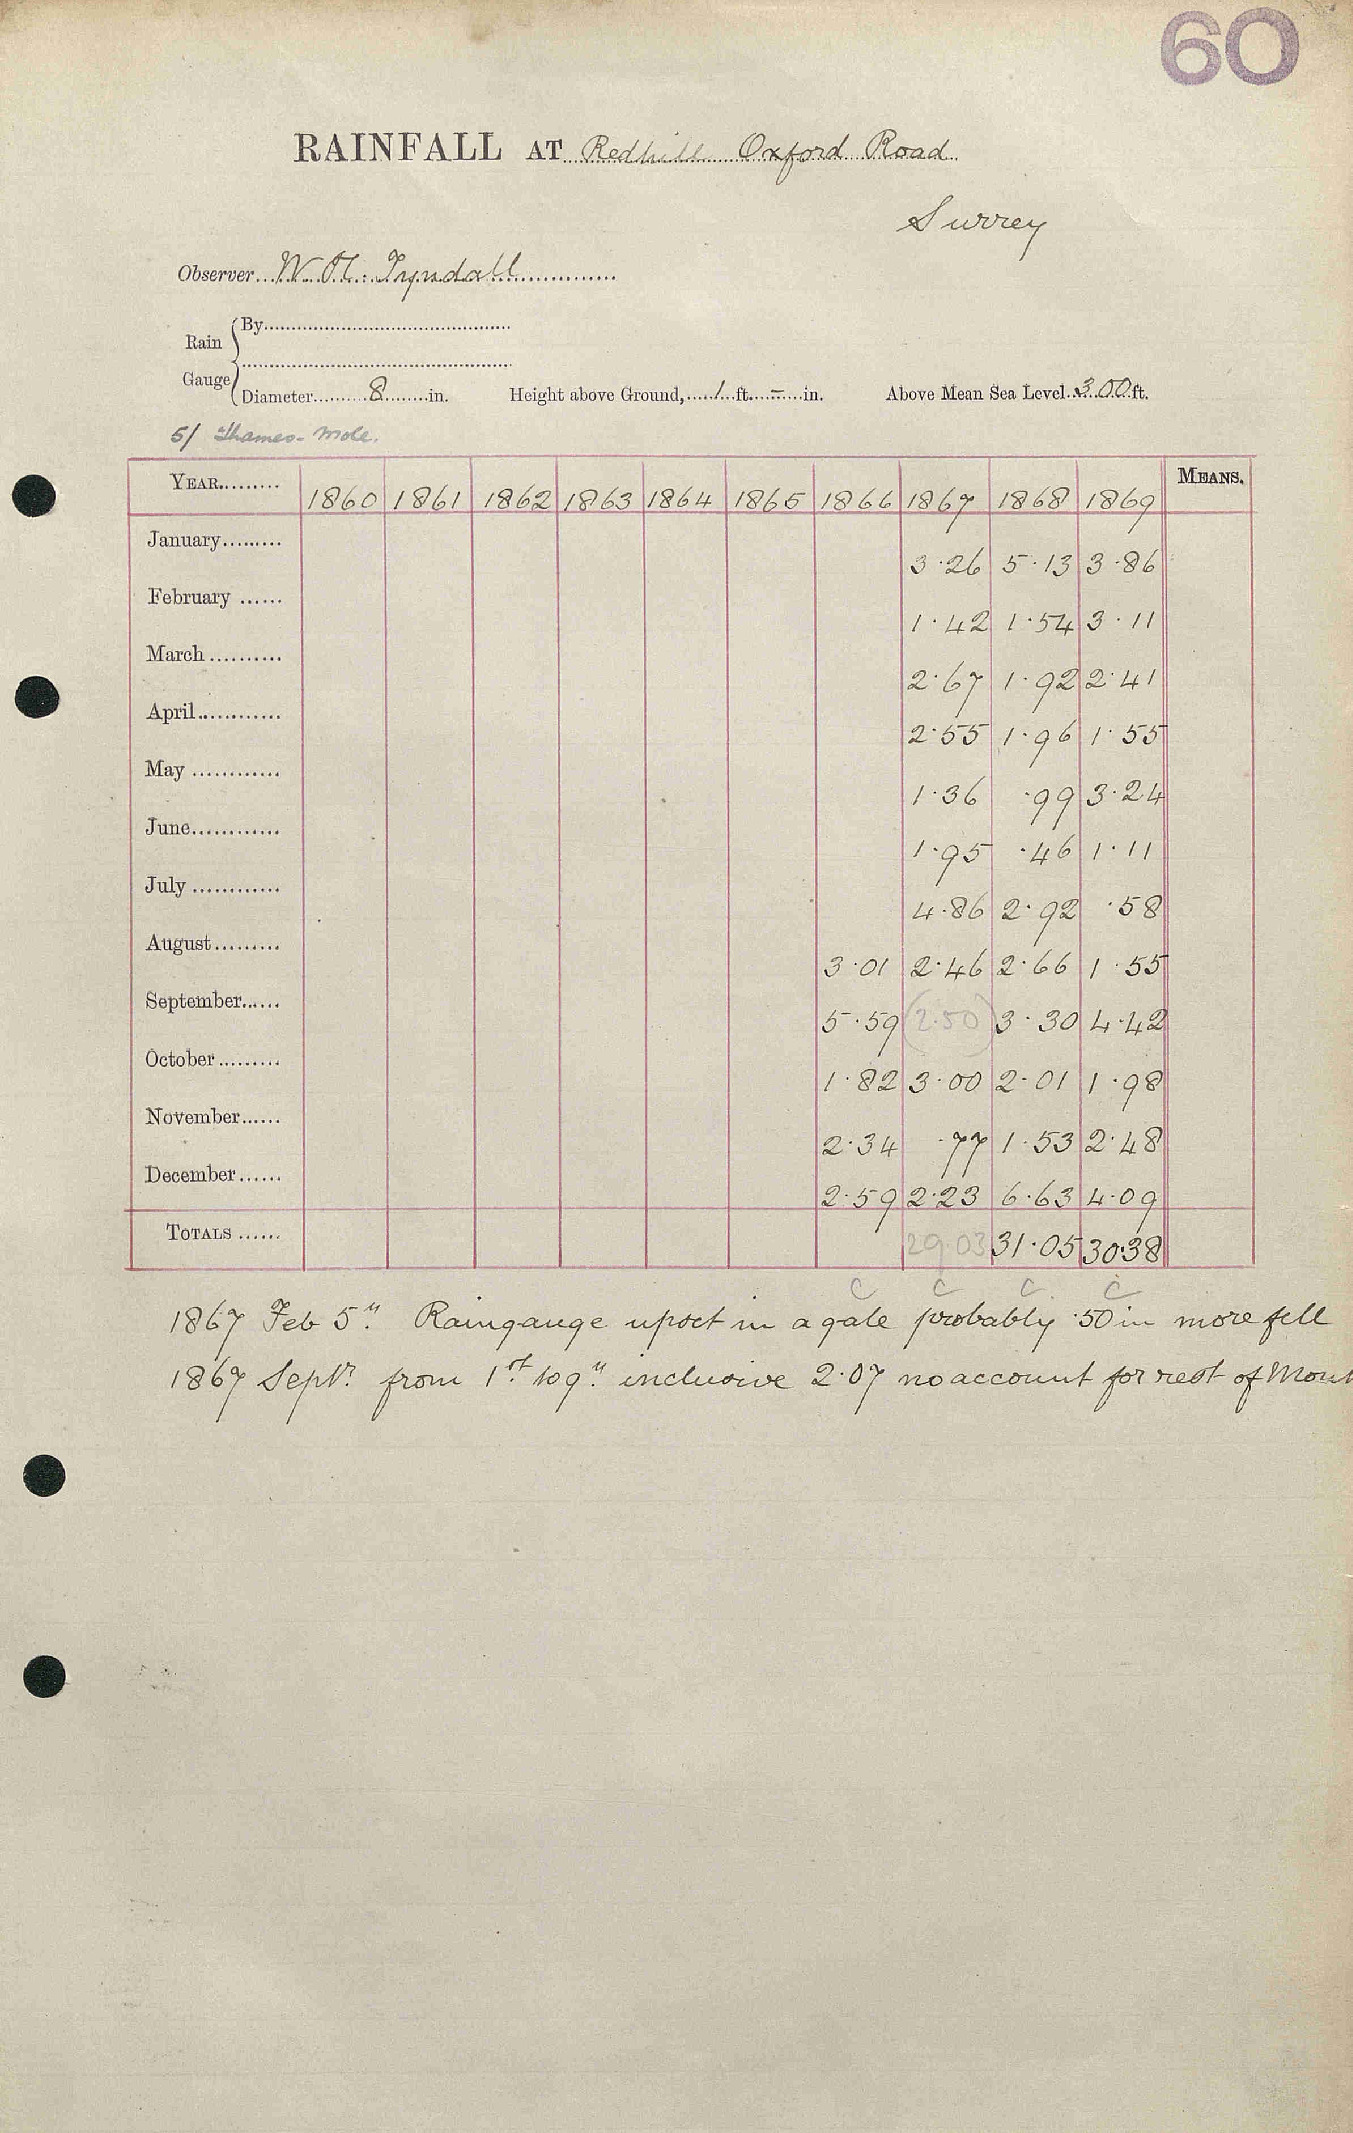 60
RAINFALL AT Redhill Oxford Road
Surrey
Observer W. H. Tyndall
Rain Gauge
By
Diameter 8 in. Height above Ground, 1 ft. - in. Above Mean Sea Level 300 ft.
5/ Thames - Mole.
YEAR 1860 1861 1862 1863 1864 1865 1866 1867 1868 1869 MEANS.
January 3.26 5.13 3.86
February 1.42 1.54 3.11
March 2.67 1.92 2.41
April 2.55 1.96 1.55
May 1.36 .99 3.24
June 1.95 .46 1.11
July 4.86 2.92 .58
August 3.01 2.46 2.66 1.55
September 5.59 (2.50) 3.30 4.42
October 1.82 3.00 2.01 1.98
November 2.34 .77 1.53 2.48
December 2.59 2.23 6.63 4.09
TOTALS 29.03 31.05 30.38
c c c c
1867 Feb 5th Raingauge upset in a gale probably .50 in more fell
1867 Septr from 1st to 9th inclusive 2.07 no account for rest of Mont